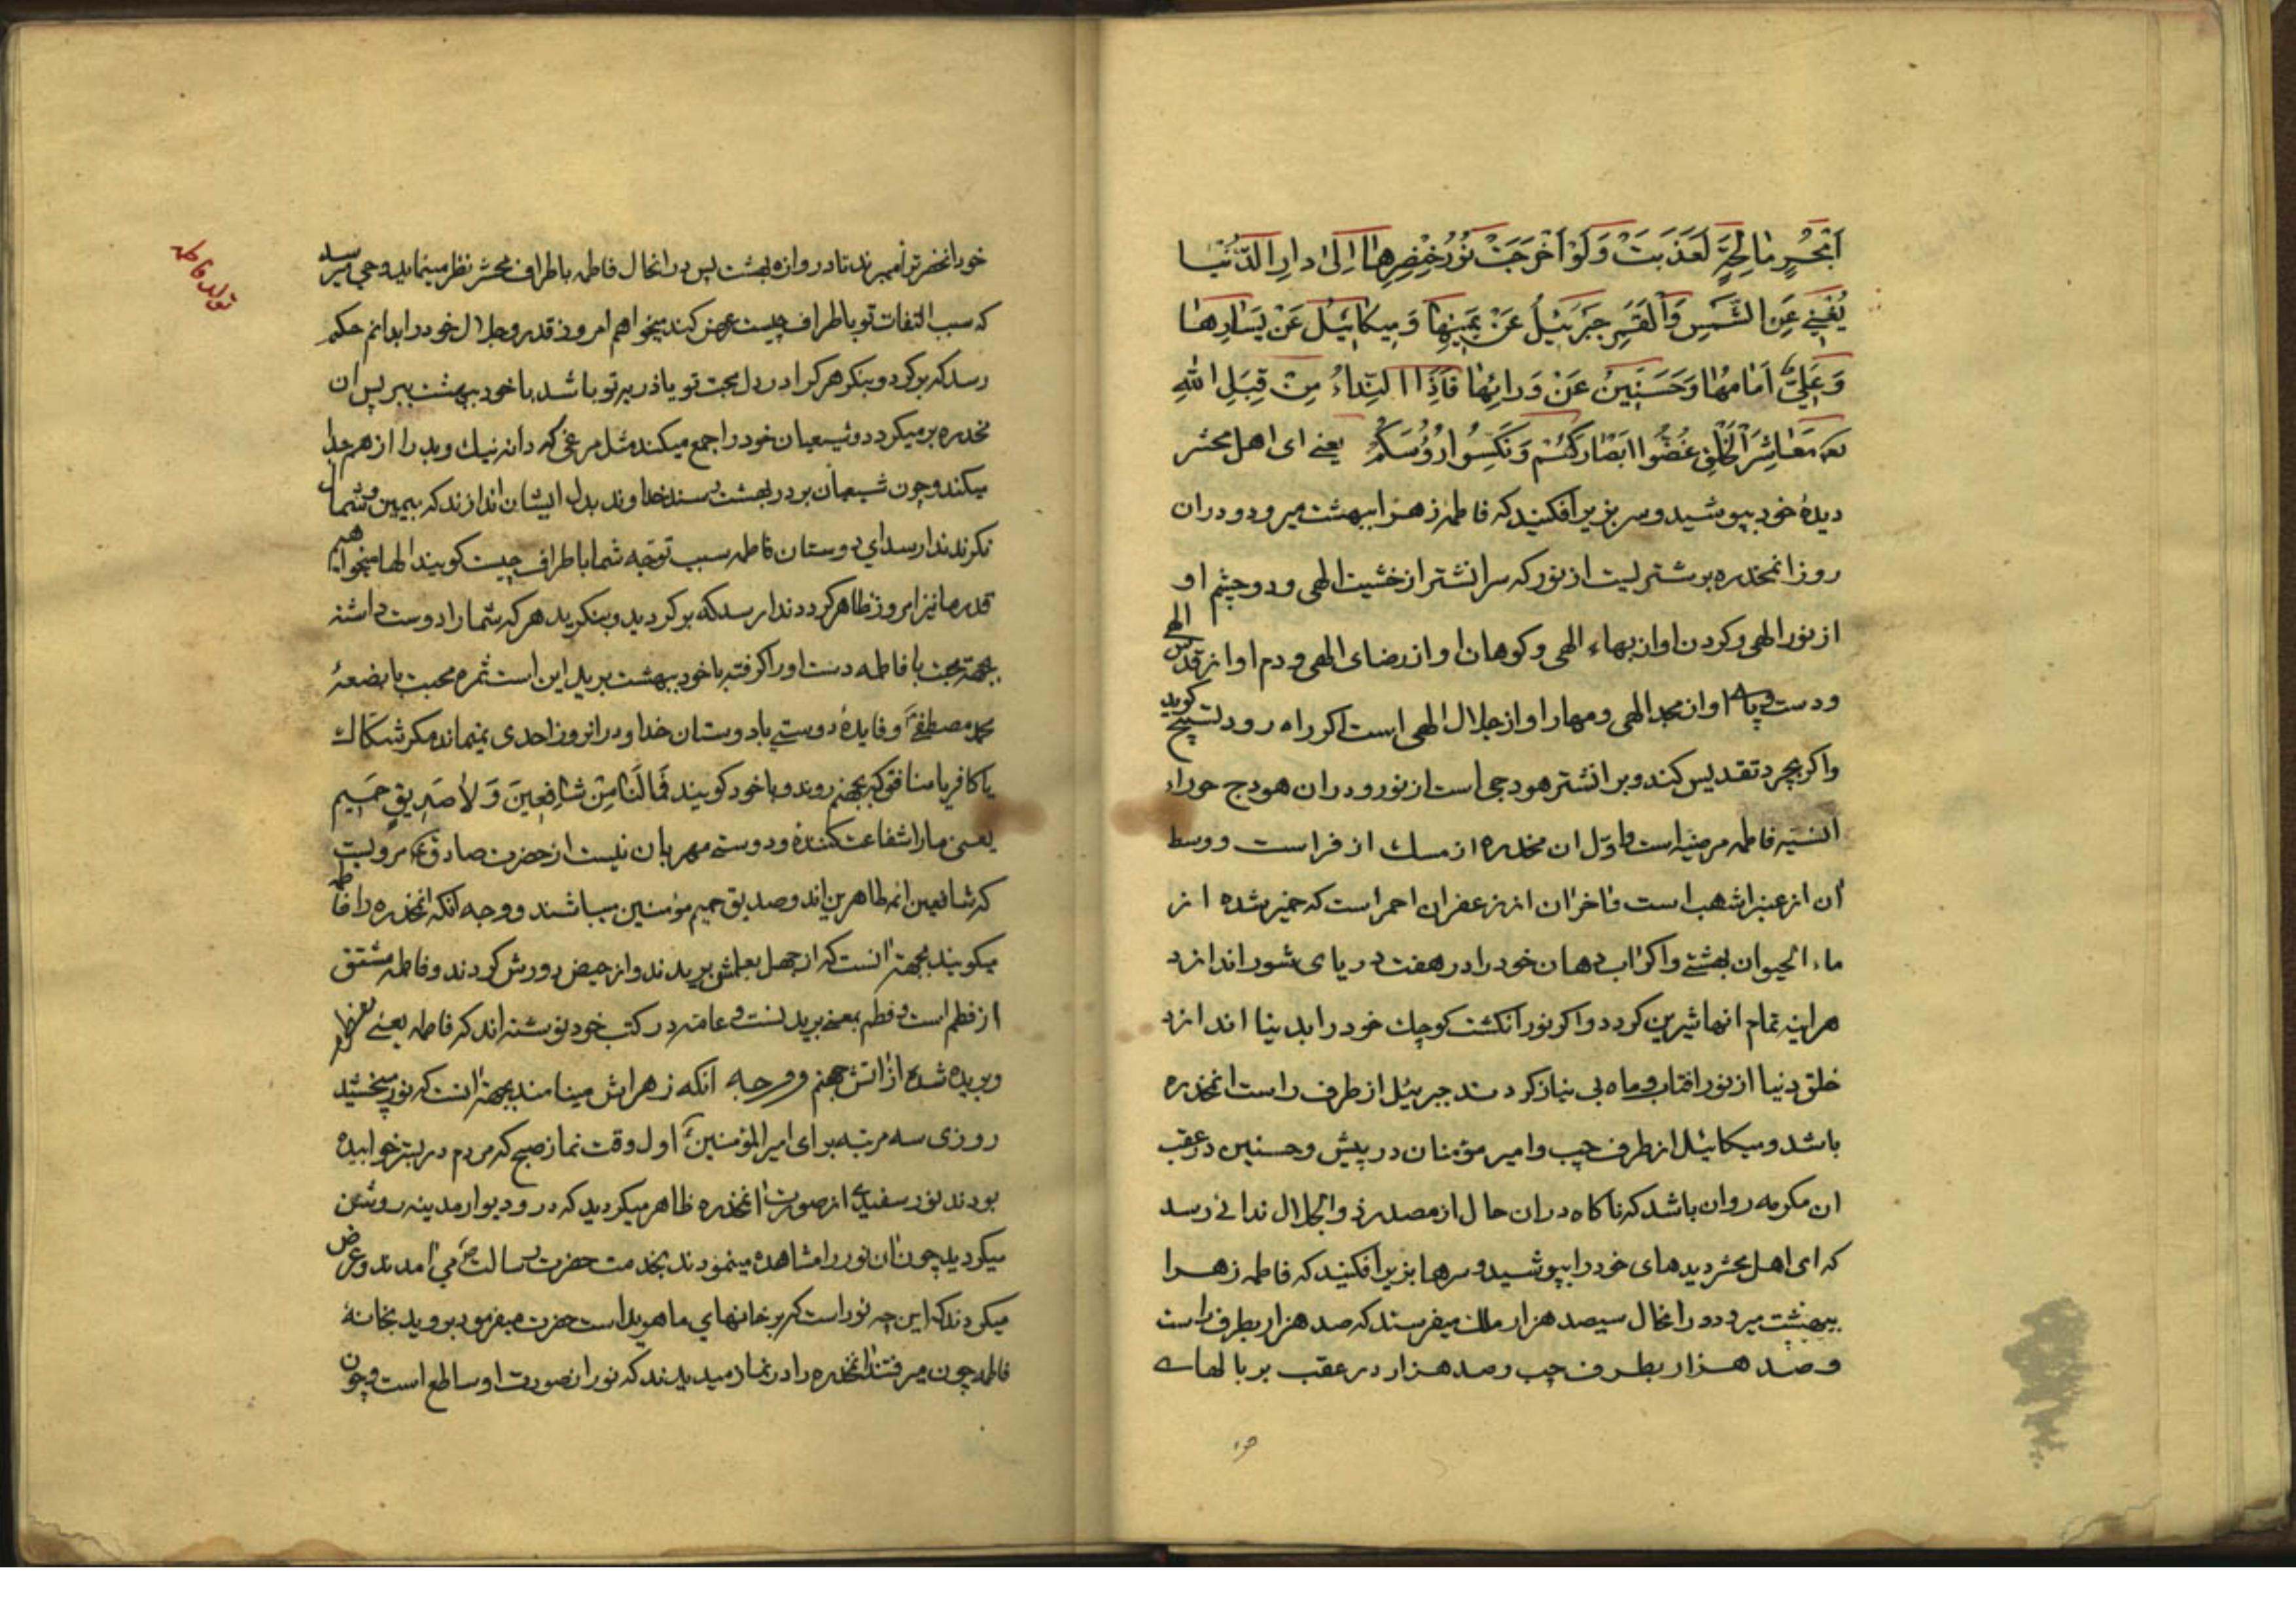 اَبْحُرٍ مٰالِحَةٍ لَعَذَبَتْ وَلَوْ اَخْرَجَتْ نُوْرُ خِنْصِرِهٰا اِلیٰ دارِ الدُّنْیٰا
یُغْنِیْ عَنِ الشَّمْسِ وَالْقَمَرِ جَبْرَئیلُ عَنْ یَمینِهٰا وَ میکائیلُ عَنْ یَسٰارِهٰا
وَ عَلِیٌّ اَمٰامَهٰا وَ حَسَنَیْنِ عَنْ وَرائِهٰا فَاِذَا النِّداءُ مِنْ قِبَلِ اللهِ
مَعٰاشِرَ الْخَلْقِ غُضُّوا اَبْصٰارَکُمْ وَ نَکِّسُوا رُؤُسَکُمْ یعنی ای اهل محشر
دیدهٔ خود بپوشید و سر بزیر افکنید که فاطمه زهرا ببهشت میرود و در ان
روز انمخدره بر شتریست از نور که سر انشتر از خشیت الهی و دو چشم او
از نور الهی و کردن او از بهاء الهی و کوهان او از رضای الهی و دم او از قدس الهی
و دست و پای او از مجد الهی و مهار او از جلال الهی است اکر راه رود تسبیح کوید
و اکر بچرد تقدیس کند و بر انشتر هودجی است از نور و در ان هودج حوراء
انسیه فاطمه مرضیه است و اوّل ان مخدره از مسک اذفر است و وسط
ان از عنبر اشهب است و اخر ان از زعفران احمر است که خمیر شده از
ماء الحیوان بهشتی و اکر اب دهان خود را در هفت دریای شور اندازد
هراینه تمام انها شیرین کردد و اکر نور انکشت کوچک خود را بدنیا اندازد
خلق دنیا از نور افتاب و ماه بی نیاز کردند جبرئیل از طرف راست انمخدره
باشد و میکائیل از طرف چپ و امیر مؤمنان در پیش و حسنین در عقب
ان مکرمه روان باشد که ناکاه در ان حال از مصدر ذو الجلال ندائی رسد
که ای اهل محشر دیدهای خود را بپوشید و سرها بزیر افکنید که فاطمه زهرا
ببهشت میرود و در انحال سیصد هزار ملک میفرستد که صد هزار بطرف راست
و صد هزار بطرف چپ و صد هزار در عقب بر بالهای
خود انحضرترا میبرند تا دروازه بهشت پس در انحال فاطمه باطراف محشر نظر مینماید وحی میرسد
که سبب التفات تو باطراف چیست عرض کند میخواهم امروز قدر و جلال خود را بدانم حکم
رسد که بر کرد و بنکر هر کرا در دل محبت تو یا ذریه تو باشد با خود ببهشت ببر پس ان
مخدره بر میکردد و شیعیان خود را جمع میکند مثل مرغی که دانه نیک و بد را از هم جدا
میکند و چون شیعیان بر در بهشت رسند خداوند بدل ایشان اندازند که بیمین و شمال
نکرند ندا رسد ای دوستان فاطمه سبب توجه شما باطراف چیست کویند الها میخواهیم
قدر ما نیز امروز ظاهر کردد ندا رسد که بر کردید و بنکرید هر که شما را دوست داشته
بجهة محبت با فاطمه دست او را کرفته با خود ببهشت برید این است ثمره محبت با بضعهٔ
محمد مصطفی و فایدهٔ دوستی با دوستان خدا و در انروز احدی نمیماند مکر شکاک
یا کافر یا منافق که بجهنم روند و با خود کویند فَمٰا لَنٰا مِنْ شٰافِعینَ وَ لاٰ صَدیقٍ حَمیمٍ
یعنی ما را شفاعت کننده و دوستی مهربان نیست از حضرت صادق مرویست
که شافعین ائمه طاهرین اند و صدیق حمیم مؤمنین میباشند و وجه انکه انمخدره را فاطمه
میکویند بجهة انست که از جهل بعلمش بریدند و از حیض دورش کردند و فاطمه مشتق
از فطم است و فطم بمعنی بریدنست و عامه در کتب خود نوشته اند که فاطمه یعنی
و بریده شده از اتش جهنم و وجه انکه زهرایش مینامند بجهة انست که نور میبخشید
روزی سه مرتبه برای امیر المؤمنین اول وقت نماز صبح که مردم در بستر خوابیده
بودند نور سفیدی از صورت انمخدره ظاهر میکردید که در و دیوار مدینه روشن
میکردید چون ان نور را مشاهده مینمودند بخدمت حضرت رسالت می امدند و عرض
میکردند که این چه نور است که بر خانهای ما هویداست حضرت میفرمود بروید بخانهٔ
فاطمه چون میرفتند انمخدره را در نماز میدیدند که نور از صورت او ساطع است و چون